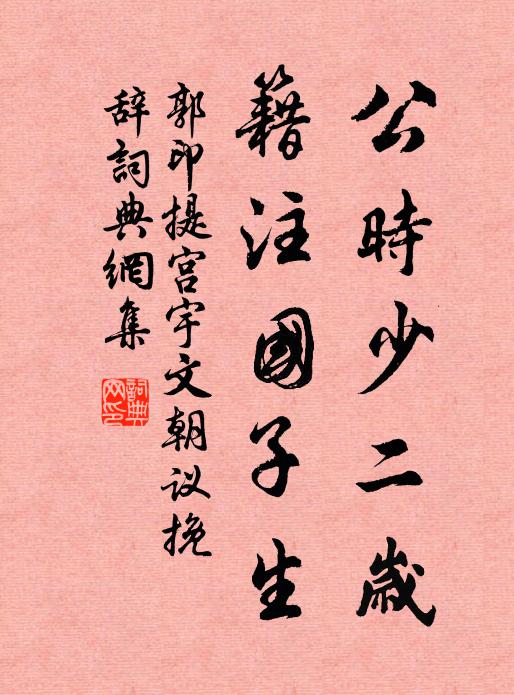 公時少二歲
籍注國子生
郭印提宮宇文朝议挽
辞詞典網集
詞典网印